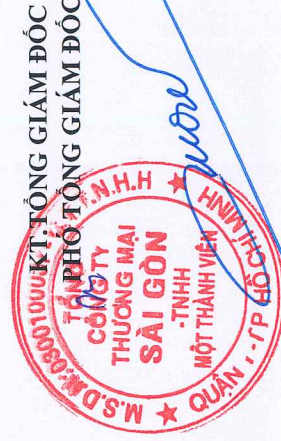 KT.TỔNG GIÁM ĐỐC
PHÓ TỔNG GIÁM ĐỐC
TỔNG
CÔNG TY
THƯƠNG MẠI
SÀI GÒN
-TNHH
MỘT THÀNH VIÊN
QUẬN 1 - TP HỒ CHÍ MINH